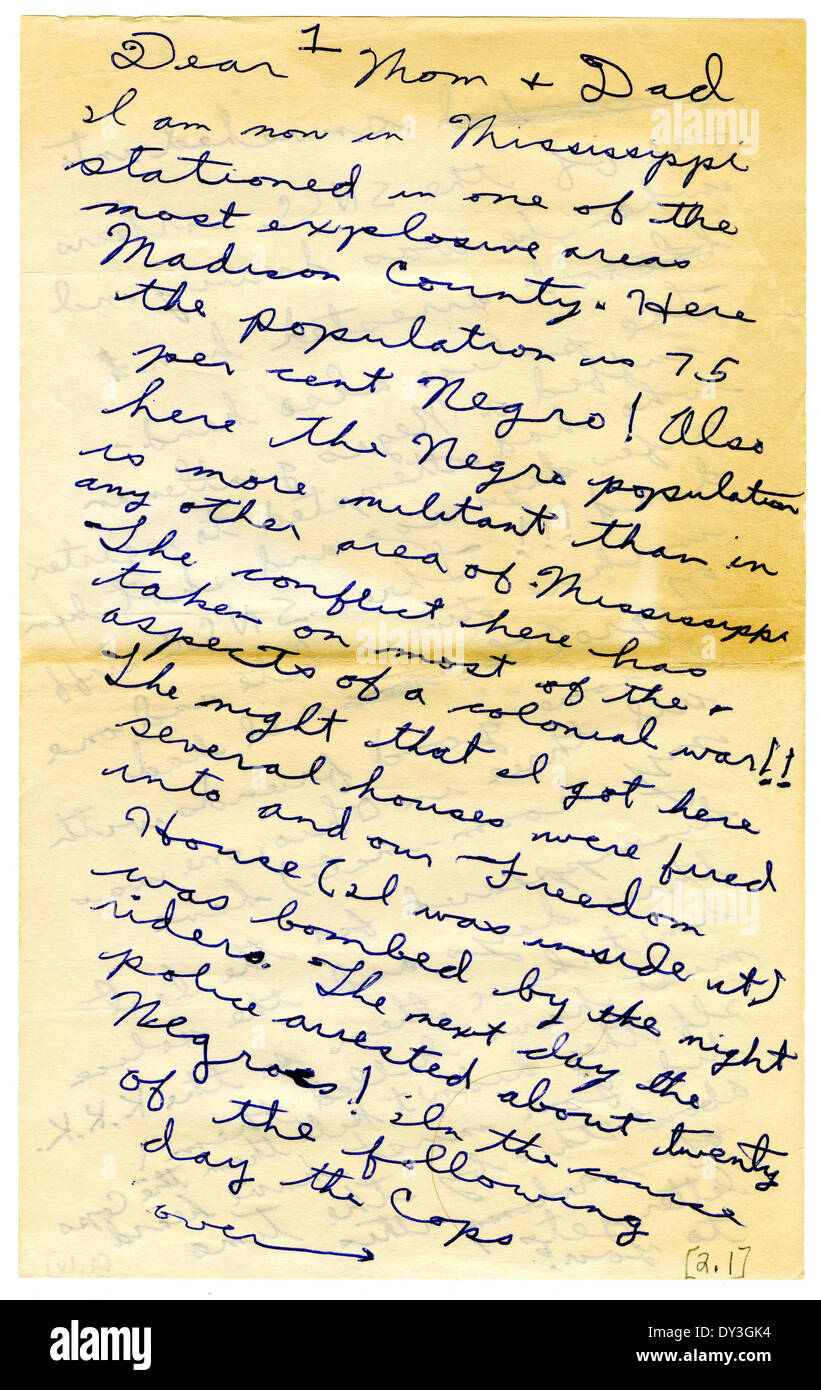 1
Dear Mom + Dad
I am now in Mississippi
stationed in one of the
most explosive areas
Madison County. Here
the population is 75
per cent Negro! Also
here the Negro population
is more militant than in
any other area of Mississippi
The conflict here has
taken on most of the
aspects of a colonial war!!
The night that I got here
several houses were fired
into and our Freedom
House (I was inside it)
was bombed by the night
riders. The next day the
police arrested about twenty
Negroes! In the course
of the following
day the Cops
over →
[2.1]
alamy
Image ID: DY3GK4
www.alamy.com